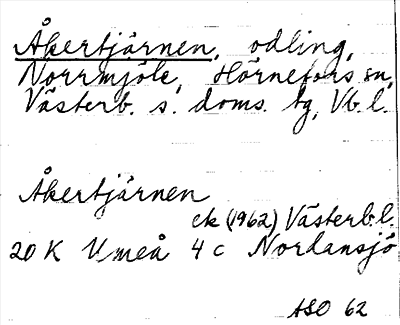 Åkertjärnen, odling,
Norrmjöle, Hörnefors sn,
Västerb. s. doms. tg, Vb. l.
Åkertjärnen
ek (1962) Västerb.l.
20 K Umeå 4 c Nordansjö
ASO 62